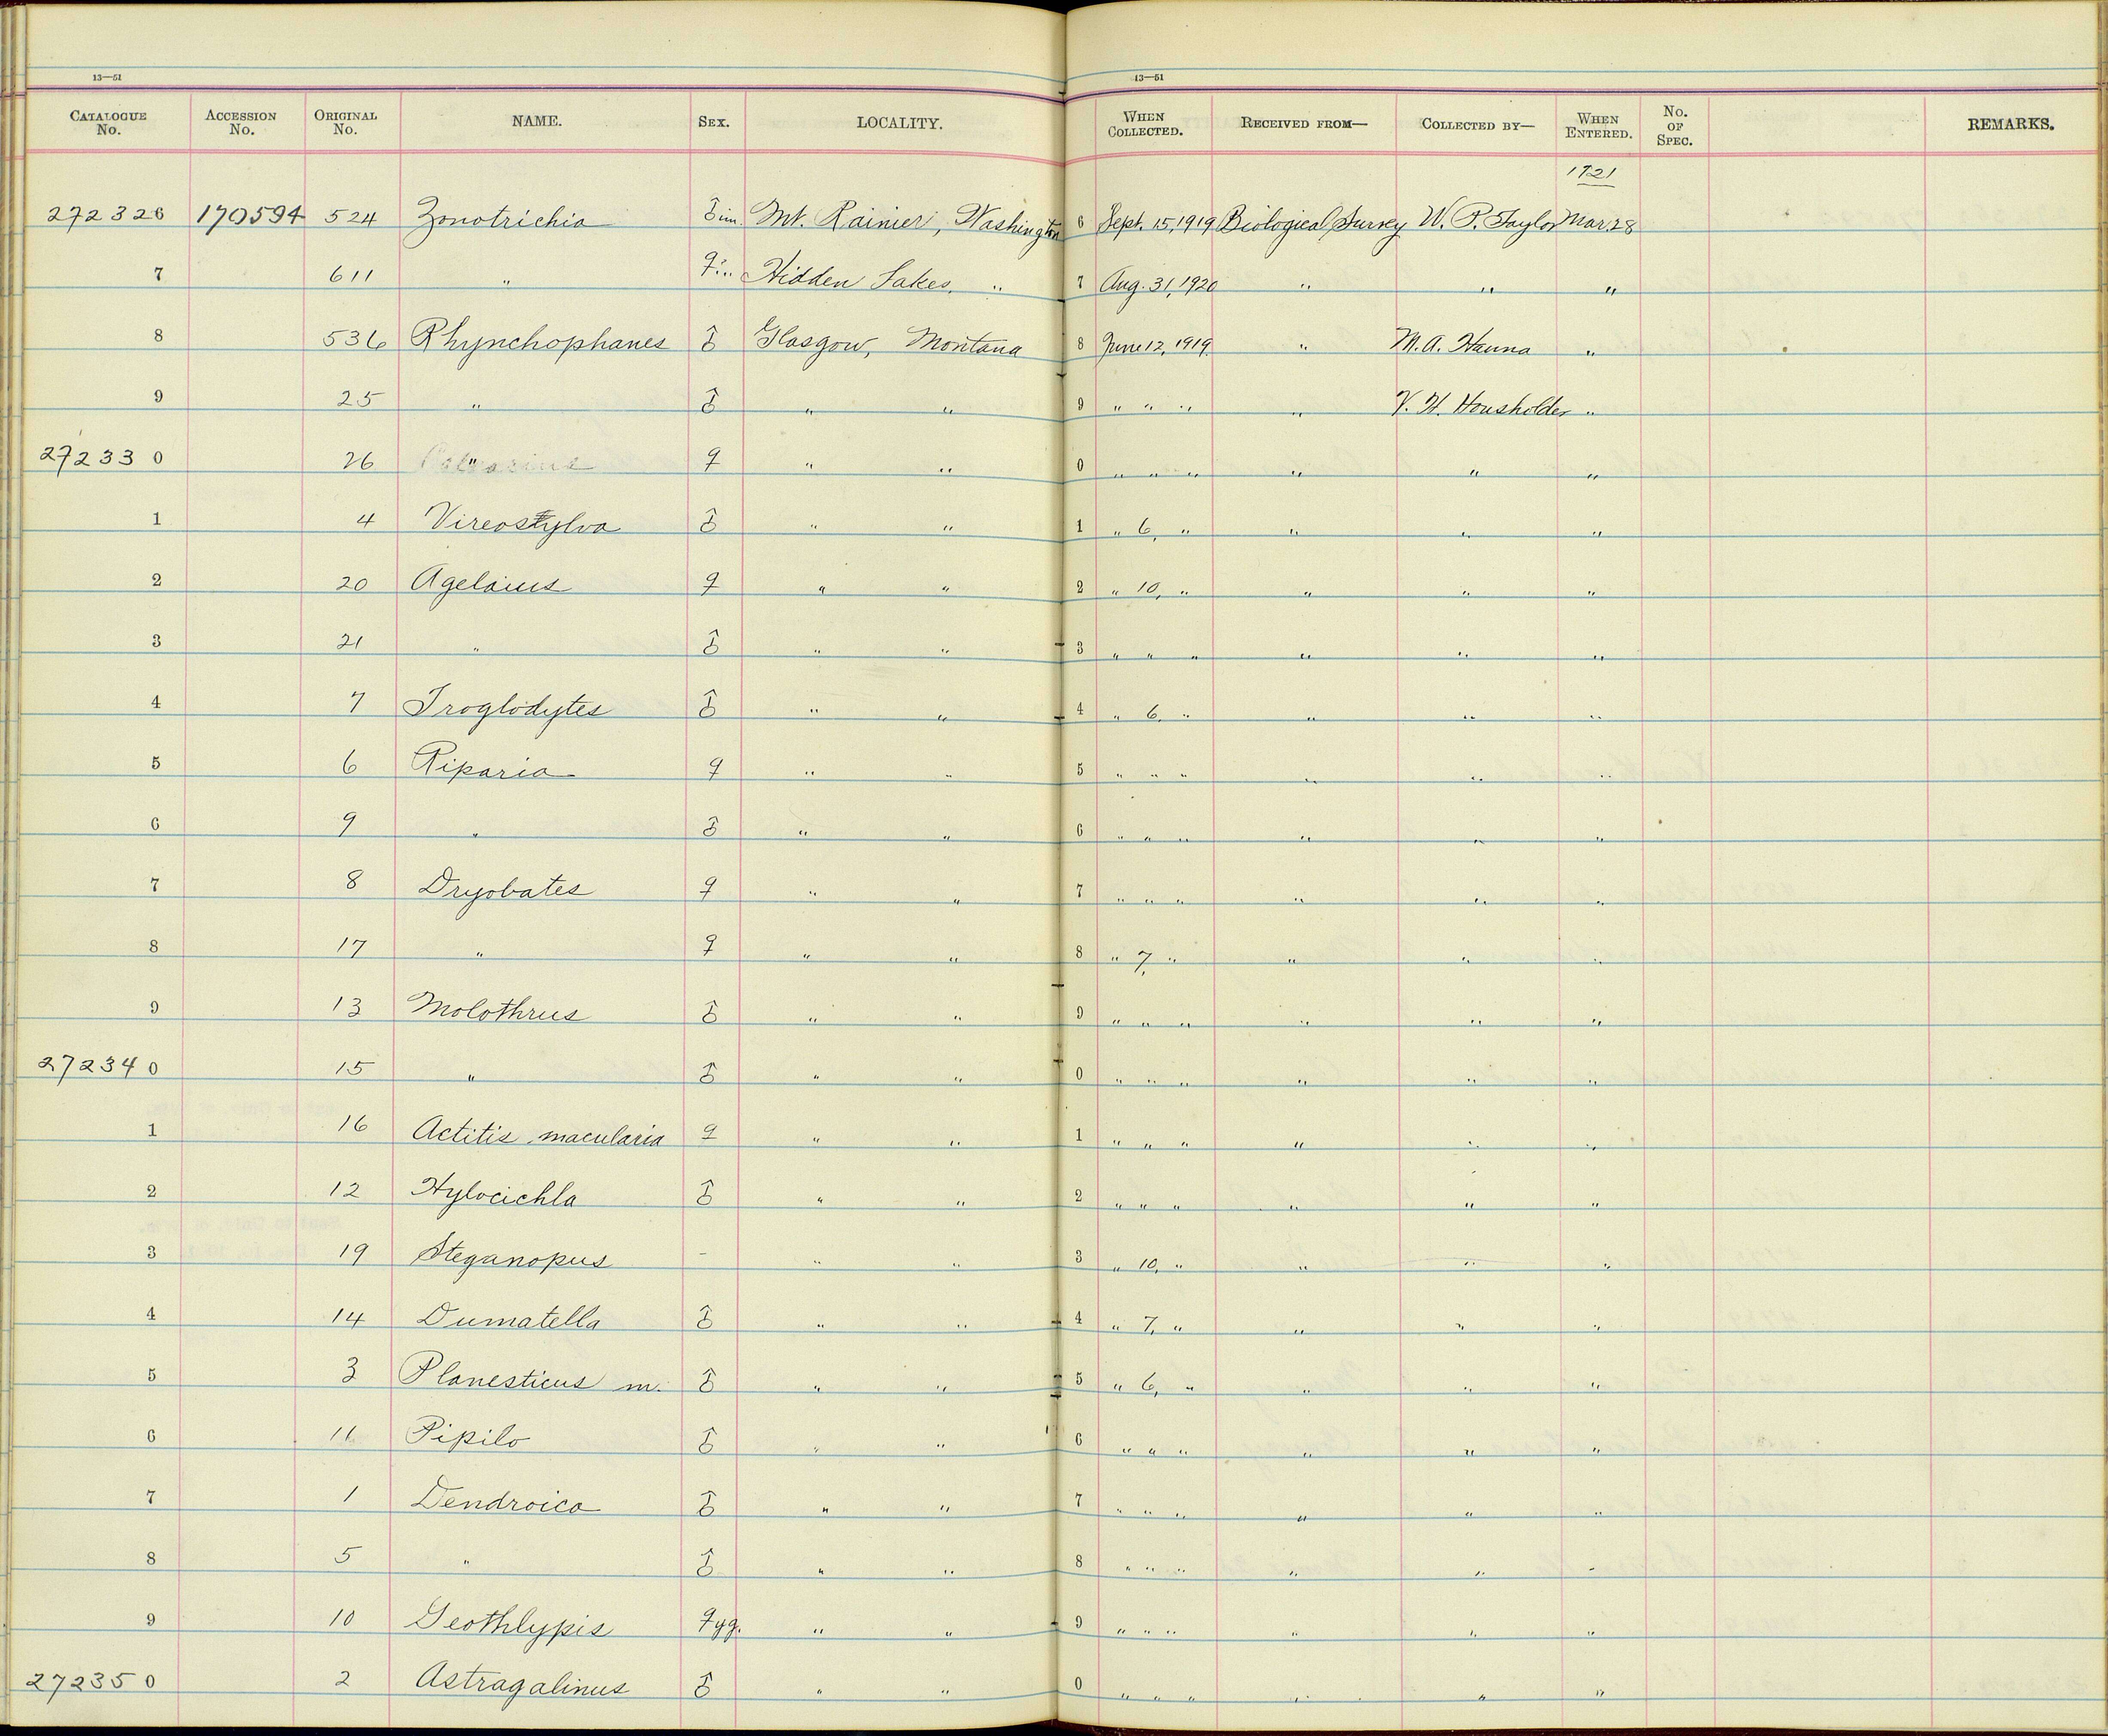 13—51 13—51
CATALOGUE No. ACCESSION No. ORIGINAL No. NAME. SEX. LOCALITY. WHEN COLLECTED. RECEIVED FROM— COLLECTED BY— WHEN ENTERED. No. OF SPEC. REMARKS.
1921
272326 170594 524 Zonotrichia ♂ im. Mt. Rainier, Washington 6 Sept. 15, 1919 Biological Survey W. P. Taylor Mar. 28
7 611 " ♀ " Hidden Lakes, " 7 Aug. 31, 1920 " " "
8 536 Rhynchophanes ♂ Glasgow, Montana 8 June 12, 1919. " M. A. Hanna "
9 25 " ♂ " " 9 " " " " V. H. Housholder "
272330 26 " ♀ " " 0 " " " " " "
1 4 Vireosylva ♂ " " 1 " 6, " " " "
2 20 Agelaius ♀ " " 2 " 10, " " " "
3 21 " ♂ " " 3 " " " " " "
4 7 Troglodytes ♂ " " 4 " 6, " " " "
5 6 Riparia ♀ " " 5 " " " " " "
6 9 " ♂ " " 6 " " " " " "
7 8 Dryobates ♀ " " 7 " " " " " "
8 17 " ♀ " " 8 " 7, " " " "
9 13 Molothrus ♂ " " 9 " " " " " "
272340 15 " ♂ " " 0 " " " " " "
1 16 Actitis macularia ♀ " " 1 " " " " " "
2 12 Hylocichla ♂ " " 2 " " " " " "
3 19 Steganopus - " " 3 " 10, " " " "
4 14 Dumatella ♂ " " 4 " 7, " " " "
5 3 Planesticus m. ♂ " " 5 " 6, " " " "
6 11 Pipilo ♂ " " 6 " " " " " "
7 1 Dendroica ♂ " " 7 " " " " " "
8 5 " ♂ " " 8 " " " " " "
9 10 Geothlypis ♀ yg. " " 9 " " " " " "
272350 2 Astragalinus ♂ " " 0 " " " " " "